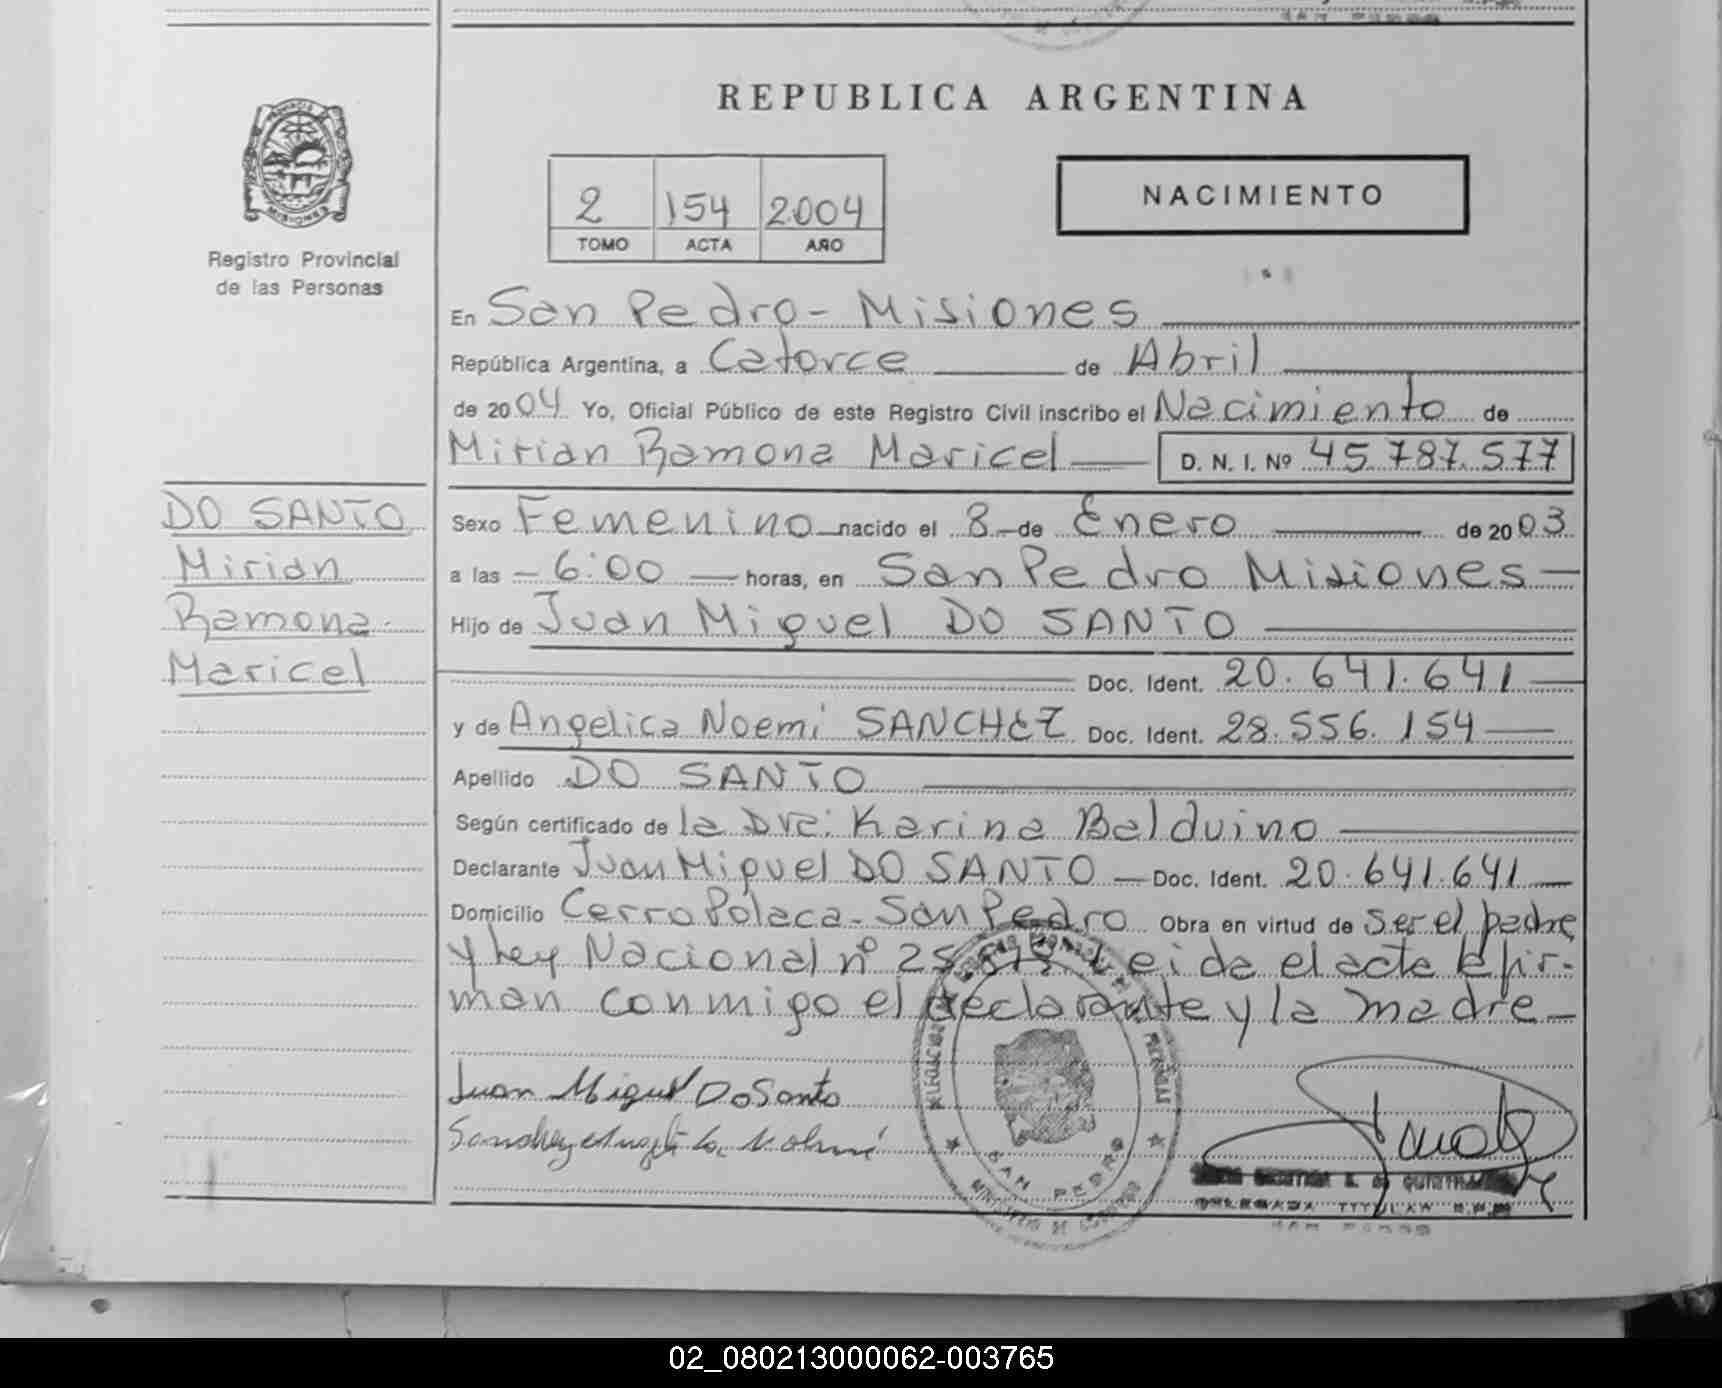 REPUBLICA ARGENTINA
2 154 2004
TOMO ACTA AÑO
NACIMIENTO
MISIONES
Registro Provincial
de las Personas
En San Pedro - Misiones
República Argentina, a Catorce de Abril
de 2004 Yo, Oficial Público de este Registro Civil inscribo el Nacimiento de
Mirian Ramona Maricel D. N. I. Nº 45.787.577
DO SANTO
Mirian
Ramona
Maricel
Sexo Femenino nacido el 8 de Enero de 2003
a las - 6:00 horas, en San Pedro Misiones
Hijo de Juan Miguel DO SANTO
Doc. Ident. 20.641.641
y de Angelica Noemi SANCHEZ Doc. Ident. 28.556.154
Apellido DO SANTO
Según certificado de la Dra: Karina Balduino
Declarante Juan Miguel DO SANTO Doc. Ident. 20.641.641
Domicilio Cerro Polaca - San Pedro Obra en virtud de ser el padre
y Ley Nacional nº Leida el acta la fir-
man conmigo el declarante y la madre
Juan Miguel Do Santo
SAN PEDRO
DELEGADA TITULAR
SAN PEDRO
02_080213000062-003765